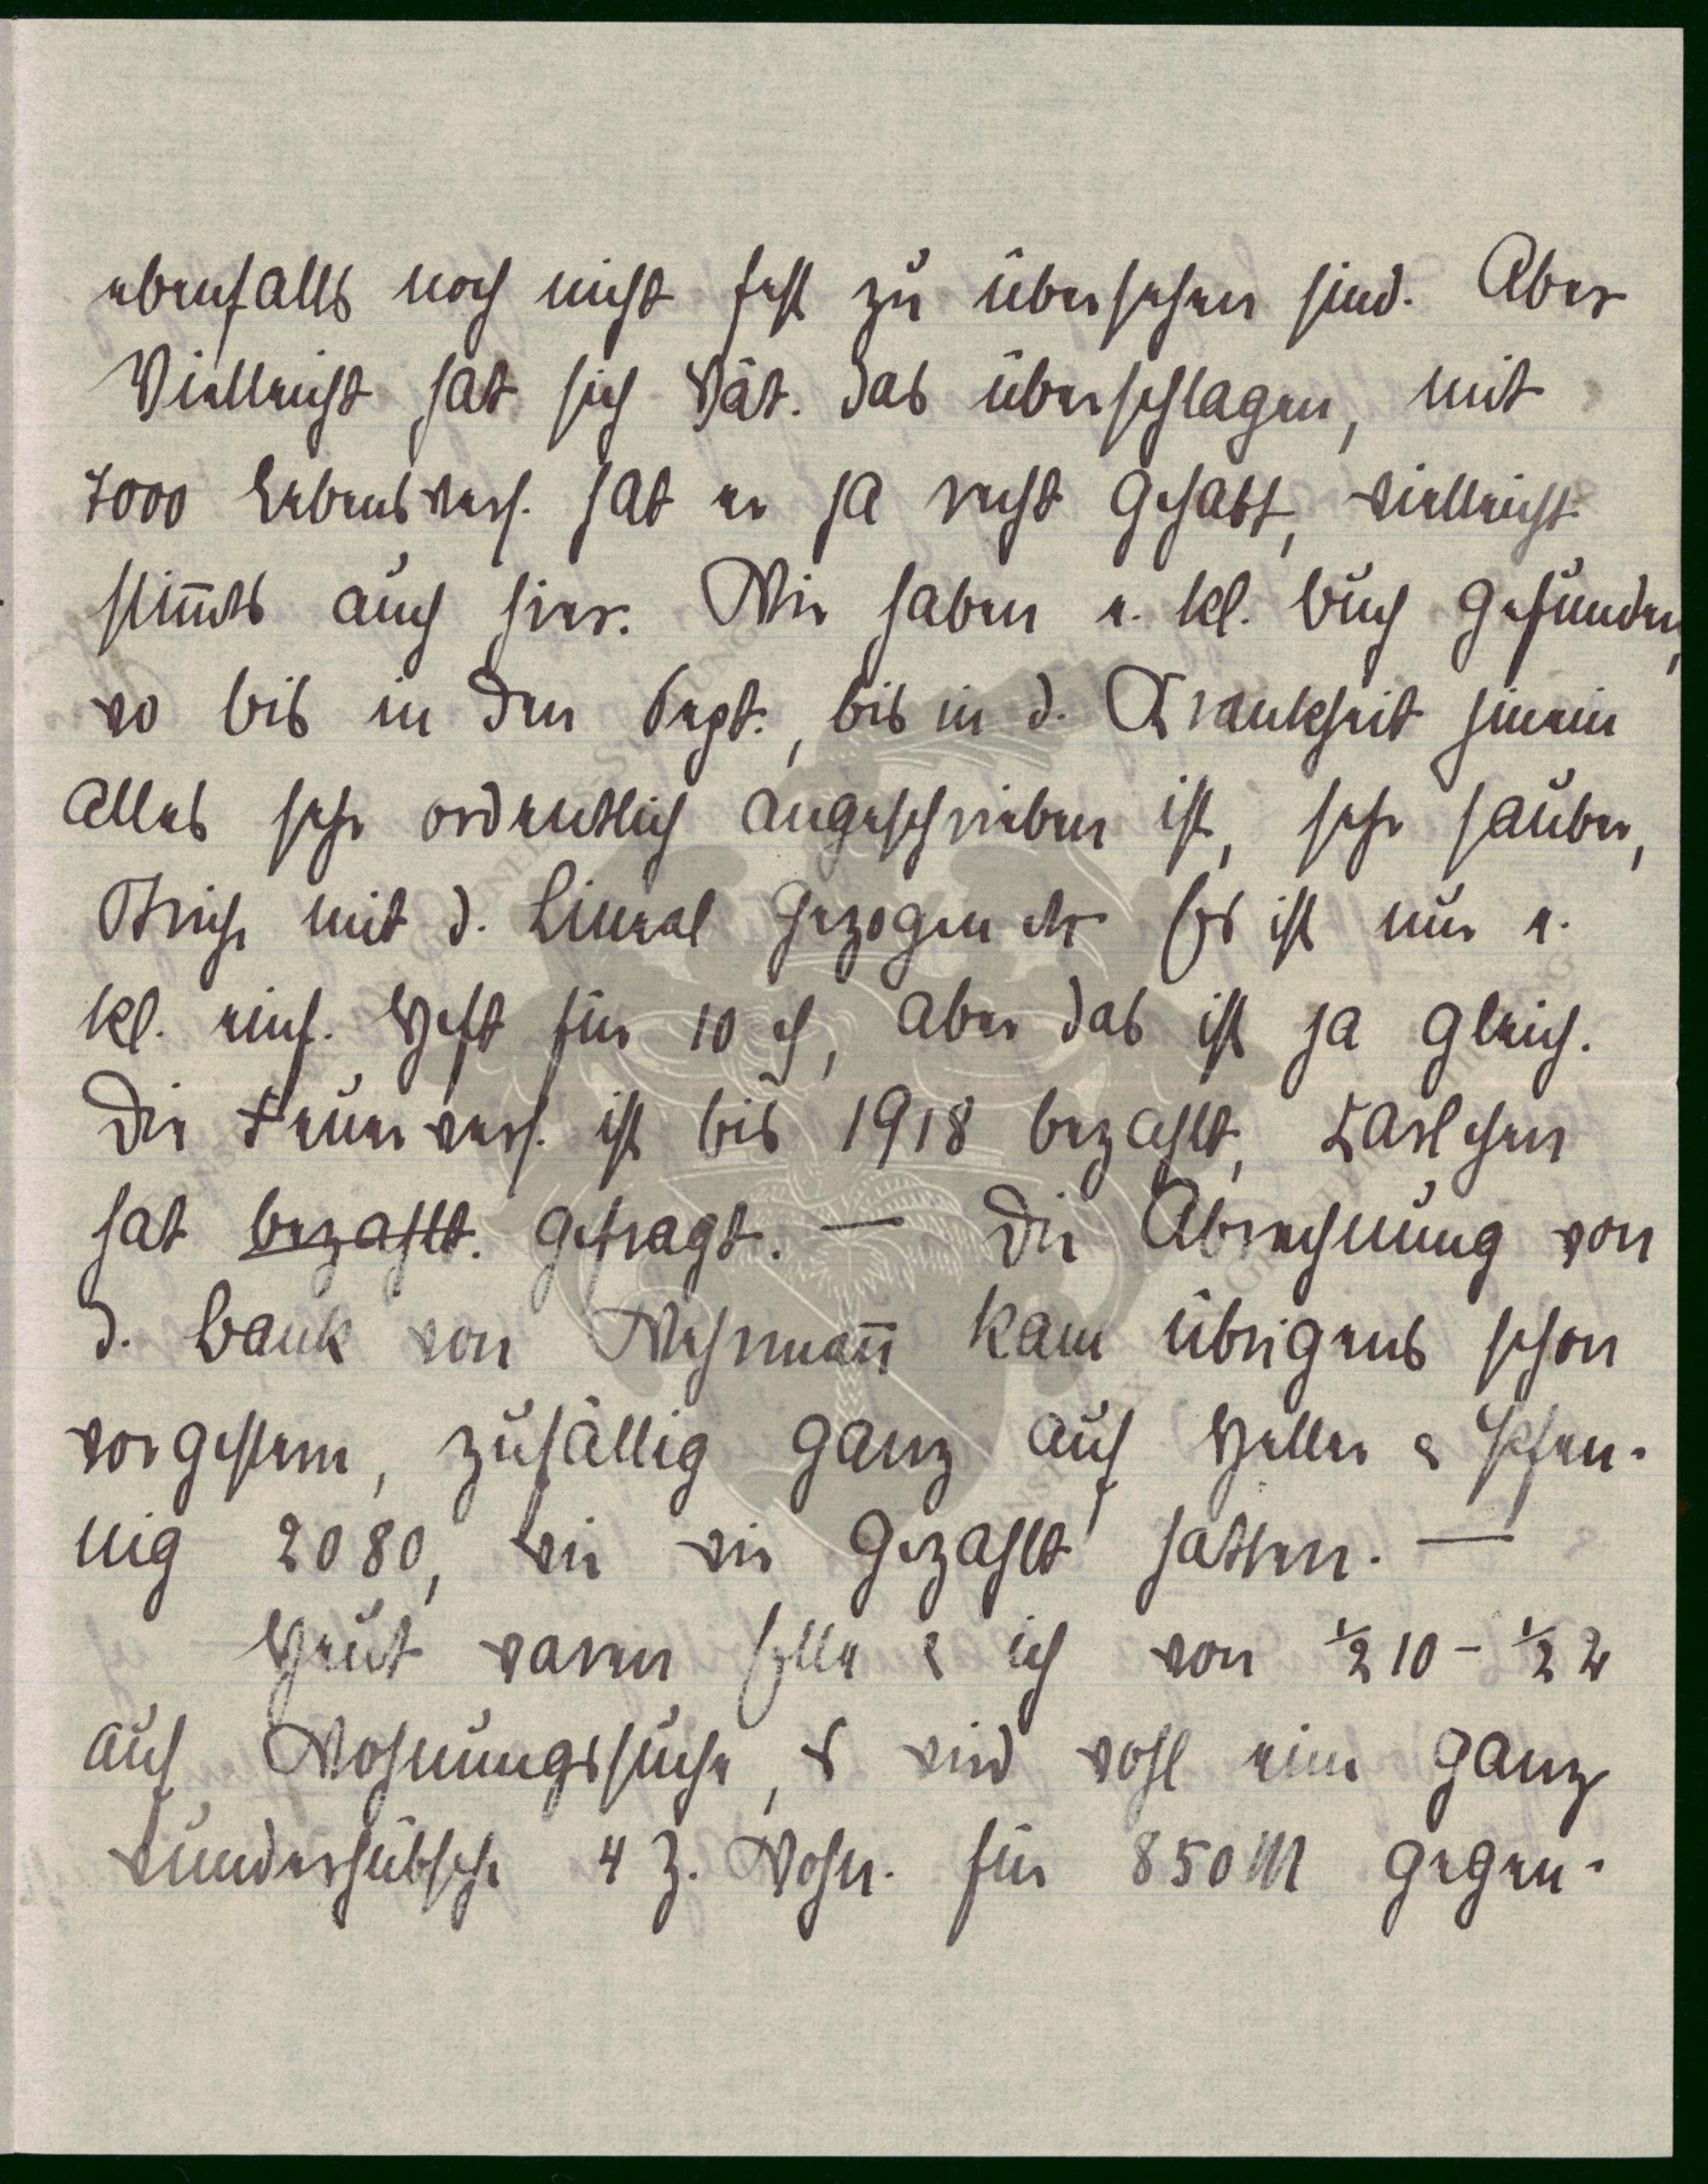 ebenfalls noch nicht fest zu übersehen sind. Aber
Vielleicht hat sich Vät. das überschlagen, mit
7000 Lebensvers. hat er ja recht gehabt, vielleicht
stim̅ts auch hier. Wir haben e. kl. Buch gefunden,
wo bis in den Sept., bis in d. Krankheit hinein
alles sehr ordentlich angeschrieben ist, sehr sauber,
Striche mit d. Lineal gezogen etc Es ist nur e.
kl. einf. Heft für 10 ₰, aber das ist ja gleich.
Die Feuervers. ist bis 1918 bezahlt, Karlchen
hat bezahlt. gefragt. — Die Abrechnung von
d. Bank von Wehrman̅ kam übrigens schon
vorgestern, zufällig ganz auf Heller & Pfen-
nig 2080, wie wir gezahlt hatten. —
Heut waren Elle & ich von ½ 10 - ½ 2
auf Wohnungssuche, es wird wohl eine ganz
wunderhübsche 4 Z. Wohn. für 850 M gegen-